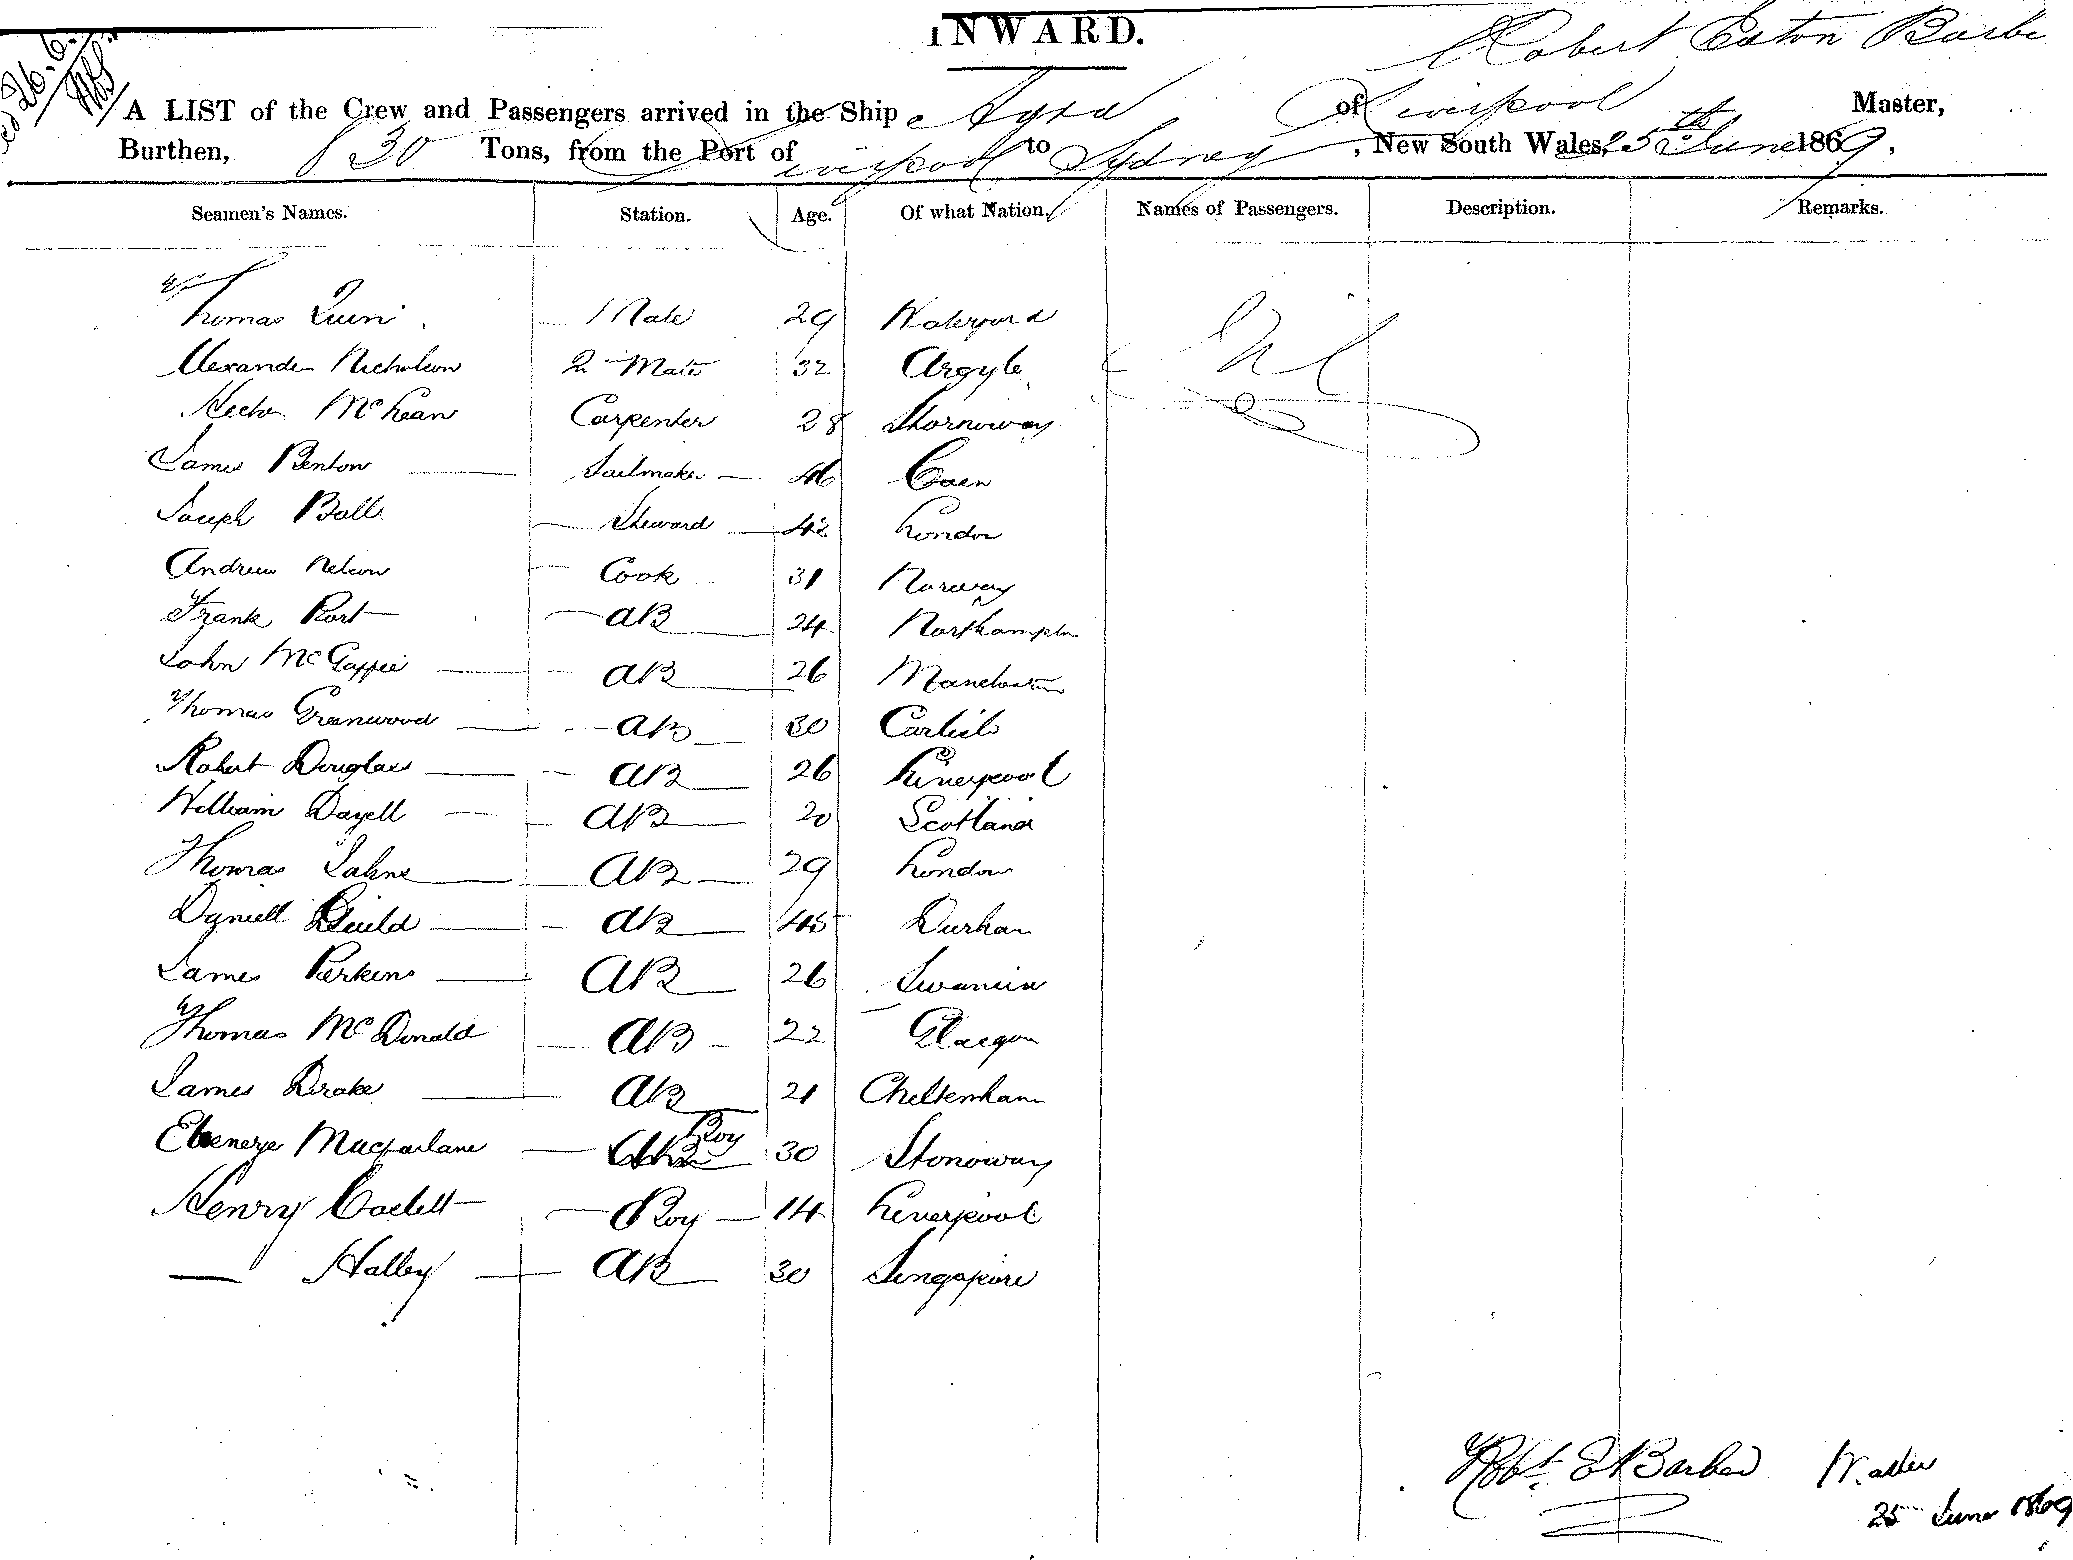 INWARD.
Robert Eaton Barbe
A LIST of the Crew and Passengers arrived in the Ship Agra of Liverpool Master,
Burthen, 830 Tons, from the Port of Liverpool to Sydney, New South Wales, 25th June 1869.
Seamen's Names. Station. Age. Of what Nation. Names of Passengers. Description. Remarks.
Thomas Quin Mate 29 Waterford Nil
Alexander Nicholson 2 Mate 32 Argyle
Hector McKean Carpenter 28 Stornoway
James Benton Sailmaker 46 Caen
Joseph Ball Steward 42 London
Andrew Nelson Cook 31 Norway
Frank Port AB 24 Northampton
John McGaffie AB 26 Manchester
Thomas Greenwood AB 30 Carlisle
Robert Douglas AB 26 Liverpool
William Dayell AB 20 Scotland
Thomas Jahns AB 29 London
Daniell Guild AB 45 Durham
James Perkins AB 26 Swansea
Thomas McDonald AB 22 Glasgow
James Drake AB 21 Cheltenham
Ebenezer Macfarlane Boy 30 Stonoway
Henry Corlett Boy 14 Liverpool
— Halley AB 30 Singapore
Robt. E Barber Master
25 June 1869